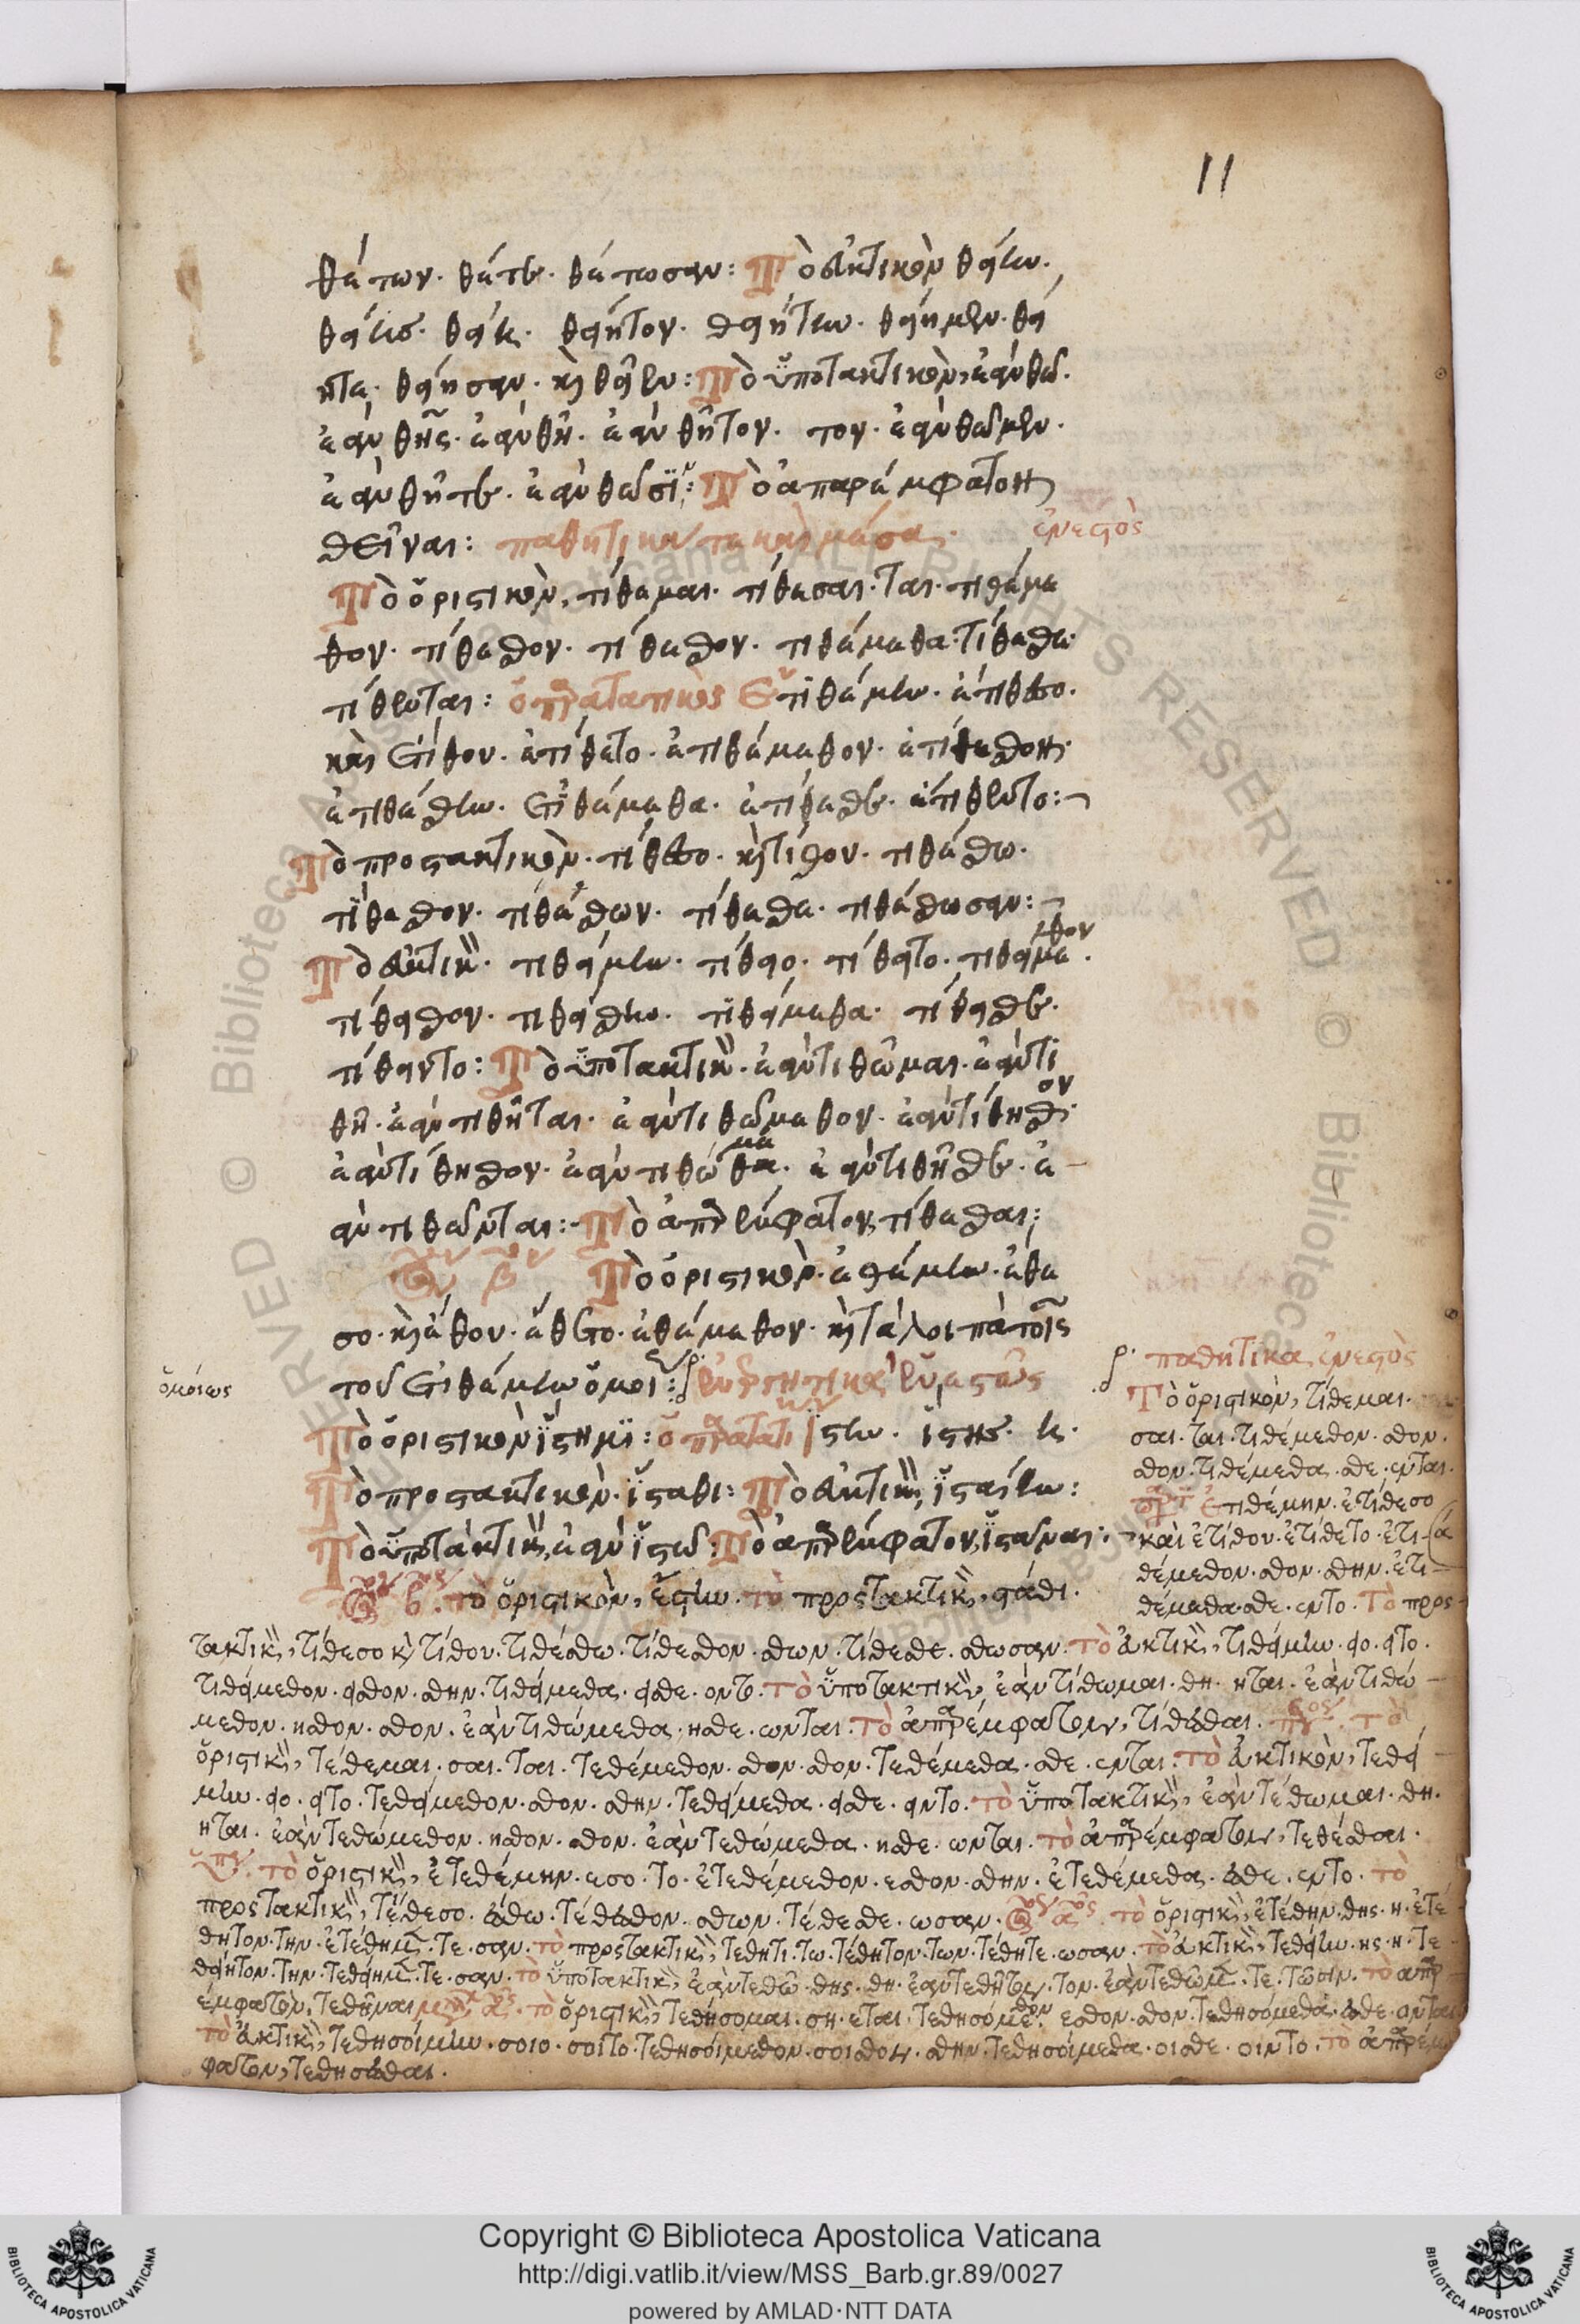 11
θέτων· θέτε· θέτωσαν: Τὸ εὐκτικὸν θείην·
θείης· θείη· θείητον· θειήτην· θείημεν· θεί
ητε· θείησαν· καὶ θεῖεν: Τὸ ὑποτακτικὸν, ἐὰν θῶ·
ἐὰν θῆς· ἐὰν θῆ· ἐὰν θῆτον· τον· ἐὰν θῶμεν·
ἐὰν θῆτε· ἐὰν θῶσι: Τὸ ἀπαρέμφατον
θεῖναι: παθητικὰ τὰ καὶ μέσα· ἐνεστὸς
Τὸ ὁριστικὸν, τίθεμαι· τίθεσαι· ται· τιθέμε
θον· τίθεσθον· τίθεσθον· τιθέμεθα· τίθεσθε·
τίθενται: ὁ παρατατικὸς Ἐτιθέμην· ἐτίθεσο·
καὶ ἐτίθου· ἐτίθετο· ἐτιθέμεθον· ἐτίθεσθον·
ἐτιθέσθην· ἐτιθέμεθα· ἐτίθεσθε· ἐτίθεντο:
Τὸ προστακτικὸν· τίθεσο· καὶ τίθου· τιθέσθω·
τίθεσθον· τιθέσθων· τίθεσθε· τιθέσθωσαν:
Τὸ εὐκτικ· τιθείμην· τίθειο· τίθειτο· τιθείμεθον·
τίθεισθον· τιθείσθην· τιθείμεθα· τίθεισθε·
τίθειντο: Τὸ ὑποτακτικ· ἐὰν τιθῶμαι· ἐὰν τι
θῆ· ἐὰν τιθῆται· ἐὰν τιθώμεθον· ἐὰν τίθησθον·
ἐὰν τίθησθον· ἐὰν τιθώμεθα· ἐὰν τιθῆσθε· ἐ
ὰν τιθῶνται: Τὸ ἀπαρέμφατον, τίθεσθαι:
β Τὸ ὁριστικὸν· ἐθέμην· ἔθε
σο· καὶ ἔθου· ἔθετο· ἐθέμεθον· καὶ τὰ λοιπὰ τοῖς
ὁμοίως
τοῦ ἐτιθέμην ὁμοι: ἐνεργητικὰ ἐνεστὼς
Τὸ ὁριστικὸν ἵστημι: ὁ παρατατι ἵστην· ἵστης· η·
Τὸ προστακτικὸν· ἵσταθι: Τὸ εὐκτικ, ἱσταίην:
Τὸ ὑποτακτικ, ἐὰν ἱστῶ: Τὸ ἀπαρέμφατον, ἱστάναι:
β. τὸ ὁριστικὸν, ἔστην. τὸ προστακτικ, στάθι.
παθητικὰ, ἐνεστὸς
Τὸ ὁριστικὸν, τίθεμαι.
σαι. ται. τιθέμεθον. σθον.
σθον. τιθέμεθα. σθε. ενται.
Ἐτιθέμην. ἐτίθεσο
καὶ ἐτίθου. ἐτίθετο. ἐτι
θέμεθον. σθον. σθην. ἐτι
θέμεθα. σθε. εντο. Τὸ προς
τακτικ, τίθεσο καὶ τίθου. τιθέσθω. τίθεσθον. σθων. τίθεσθε. σθωσαν. τὸ εὐκτικ, τιθείμην. ειο. ειτο.
τιθείμεθον. εισθον. σθην. τιθείμεθα. εισθε. οντο. τὸ ὑποτακτικὸν, ἐὰν τίθωμαι. θη. ηται. ἐὰν τιθώ
μεθον. ησθον. σθον. ἐὰν τιθώμεθα. ησθε. ωνται. τὸ ἀπαρέμφατον, τίθεσθαι. τὸ
ὁριστικ, τέθεμαι. σαι. ται. τεθέμεθον. σθον. σθον. τεθέμεθα. σθε. ενται. τὸ εὐκτικὸν, τεθεί
μην. ειο. ειτο. τεθείμεθον. σθον. σθην. τεθείμεθα. εισθε. ειντο. τὸ ὑποτακτικ, ἐὰν τέθωμαι. θη.
ηται. ἐὰν τεθώμεθον. ησθον. σθον. ἐὰν τεθώμεθα. ησθε. ωνται. τὸ ἀπαρέμφατον, τεθέσθαι.
τὸ ὁριστικ, ἐτεθέμην. εσο. το. ἐτεθέμεθον. εσθον. σθην. ἐτεθέμεθα. εσθε. εντο. τὸ
προστακτικ, τέθεσο. έσθω. τέθεσθον. σθων. τέθεσθε. ωσαν. τὸ ὁριστικ, ἐτέθην. θης. η. ἐτέ
θητον. την. ἐτέθημεν. τε. σαν. τὸ προστακτικ, τέθητι. τω. τέθητον. των. τέθητε. ωσαν. τὸ εὐκτικ, τεθείην. ης. η. τε
θείητον. την. τεθείημεν. τε. σαν. τὸ ὑποτακτικ, ἐὰν τεθῶ. θης. θη. ἐὰν τεθῆτον. τον. ἐὰν τεθῶμεν. τε. τῶσιν. τὸ ἀπαρ
έμφατον, τεθῆναι τὸ ὁριστικ, τεθήσομαι. ση. εται. τεθησόμεθον. εσθον. σθον. τεθησόμεθα. εσθε. ονται
τὸ εὐκτικ, τεθησοίμην. σοιο. σοιτο. τεθησοίμεθον. σοισθον. σθην. τεθησοίμεθα. οισθε. οιντο. τὸ ἀπαρέμ
φατον, τεθήσεσθαι.
Copyright © Biblioteca Apostolica Vaticana
http://digi.vatlib.it/view/MSS_Barb.gr.89/0027
powered by AMLAD·NTT DATA